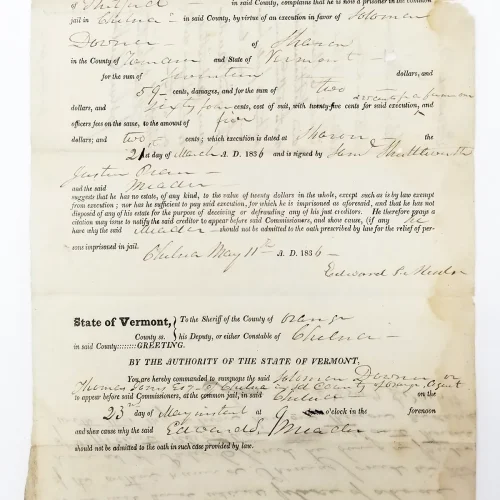 of Thetford — in said County, complains that he is now a prisoner in the common
jail in Chelsea — in said County, by virtue of an execution in favor of Solomon
Downer — of Sharon
in the County of and State of Vermont —
for the sum of dollars, and
59 — cents, damages, and for the sum of two
dollars, and sixty four cents, cost of suit, with twenty-five cents for said execution, and
officers fees on the same, to the amount of five
dollars; and two cents; which execution is dated at Sharon — the
21st day of March A. D. 1836 and is signed by Shuttleworth
Justice Peace —
and the said Meader —
suggests that he has no estate, of any kind, to the value of twenty dollars in the whole, except such as is by law exempt
from execution; nor has he sufficient to pay said execution, for which he is imprisoned as aforesaid, and that he has not
disposed of any of his estate for the purpose of deceiving or defrauding any of his just creditors. He therefore prays a
citation may issue to notify the said creditor to appear before said Commissioners, and show cause, (if any he
have why the said Meader — should not be admitted to the oath prescribed by law for the relief of per-
sons imprisoned in jail.
Chelsea May 11th A. D. 1836 —
Edward S. Meader
State of Vermont, } To the Sheriff of the County of Orange
County ss. } his Deputy, or either Constable of Chelsea —
in said County::::::::GREETING.
BY THE AUTHORITY OF THE STATE OF VERMONT,
You are hereby commanded to summon the said Solomon Downer or
Thomas Jones Esq. of Chelsea in sd County of Orange, Agent
to appear before said Commissioners, at the common jail, in said Chelsea — on the
23rd day of May instant at 9 o'clock in the forenoon
and shew cause why the said Edward S. Meader —
should not be admitted to the oath in such case provided by law.